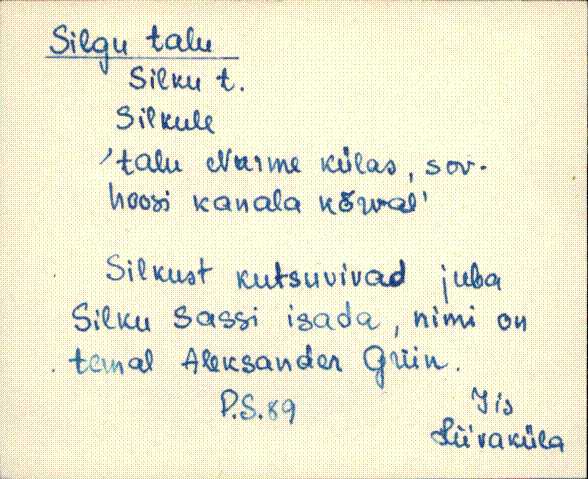 Silgu talu
Silku t.
Silkule
'talu Nurme külas, sov-
hoosi kanala kõrval'
Silkust kutsuvivad juba
Silku Sassi isada, nimi on
temal Aleksander Grün.
P.S.89
Jis
Liivaküla